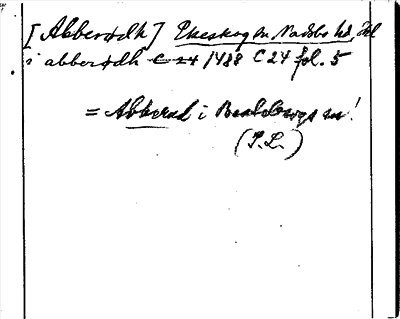 [Abberødh] Ekeskog sn Vadsbo hd, Vgl
i abberødh C 24 1488 C 24 fol. 5
= Abberud i Beatebergs sn!
(I.L.)